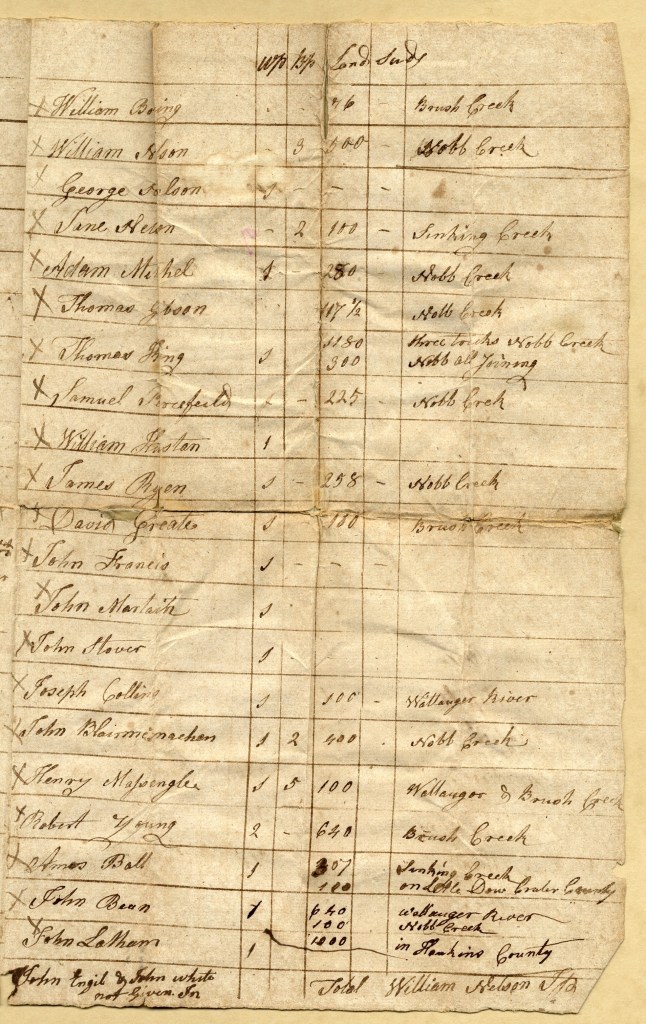 wp Bp Land
X William Boing - - 76 - Brush Creek
X William - 3 300 - Nobb Creek
X George 1 - - -
X Jane - 2 100 - Sinking Creek
X Adam Michel 1 - 280 Nobb Creek
X Thomas Gibson 117 1/2 Nobb Creek
1180 three tracks Nobb Creek
X Thomas King 1 300 Nobb all Joining
X Samuel 1 - 225 - Nobb Crek
X William Hustan 1
X James Ryen 1 - 258 - Nobb Creek
X David Greate 1 - 100 Brush Creek
X John Francis 1 - - -
X John 1
X John Stover 1 - - -
X Joseph Collins 1 100 - Wattauger River
X John 1 2 400 - Nobb Creek
X Henry Massengle 1 5 100 Wattauger & Brush Creek
X Robert Young 2 - 640 Brush Creek
X Amos Ball 1 307 Sinking Creek
100 on Little Dow Crater County
X John Bean 1 640 Wattauger River
100 Nobb Creek
X John Latham 1 1000 in Hawkins County
John Engil & John white
not Given In Total William Nelson